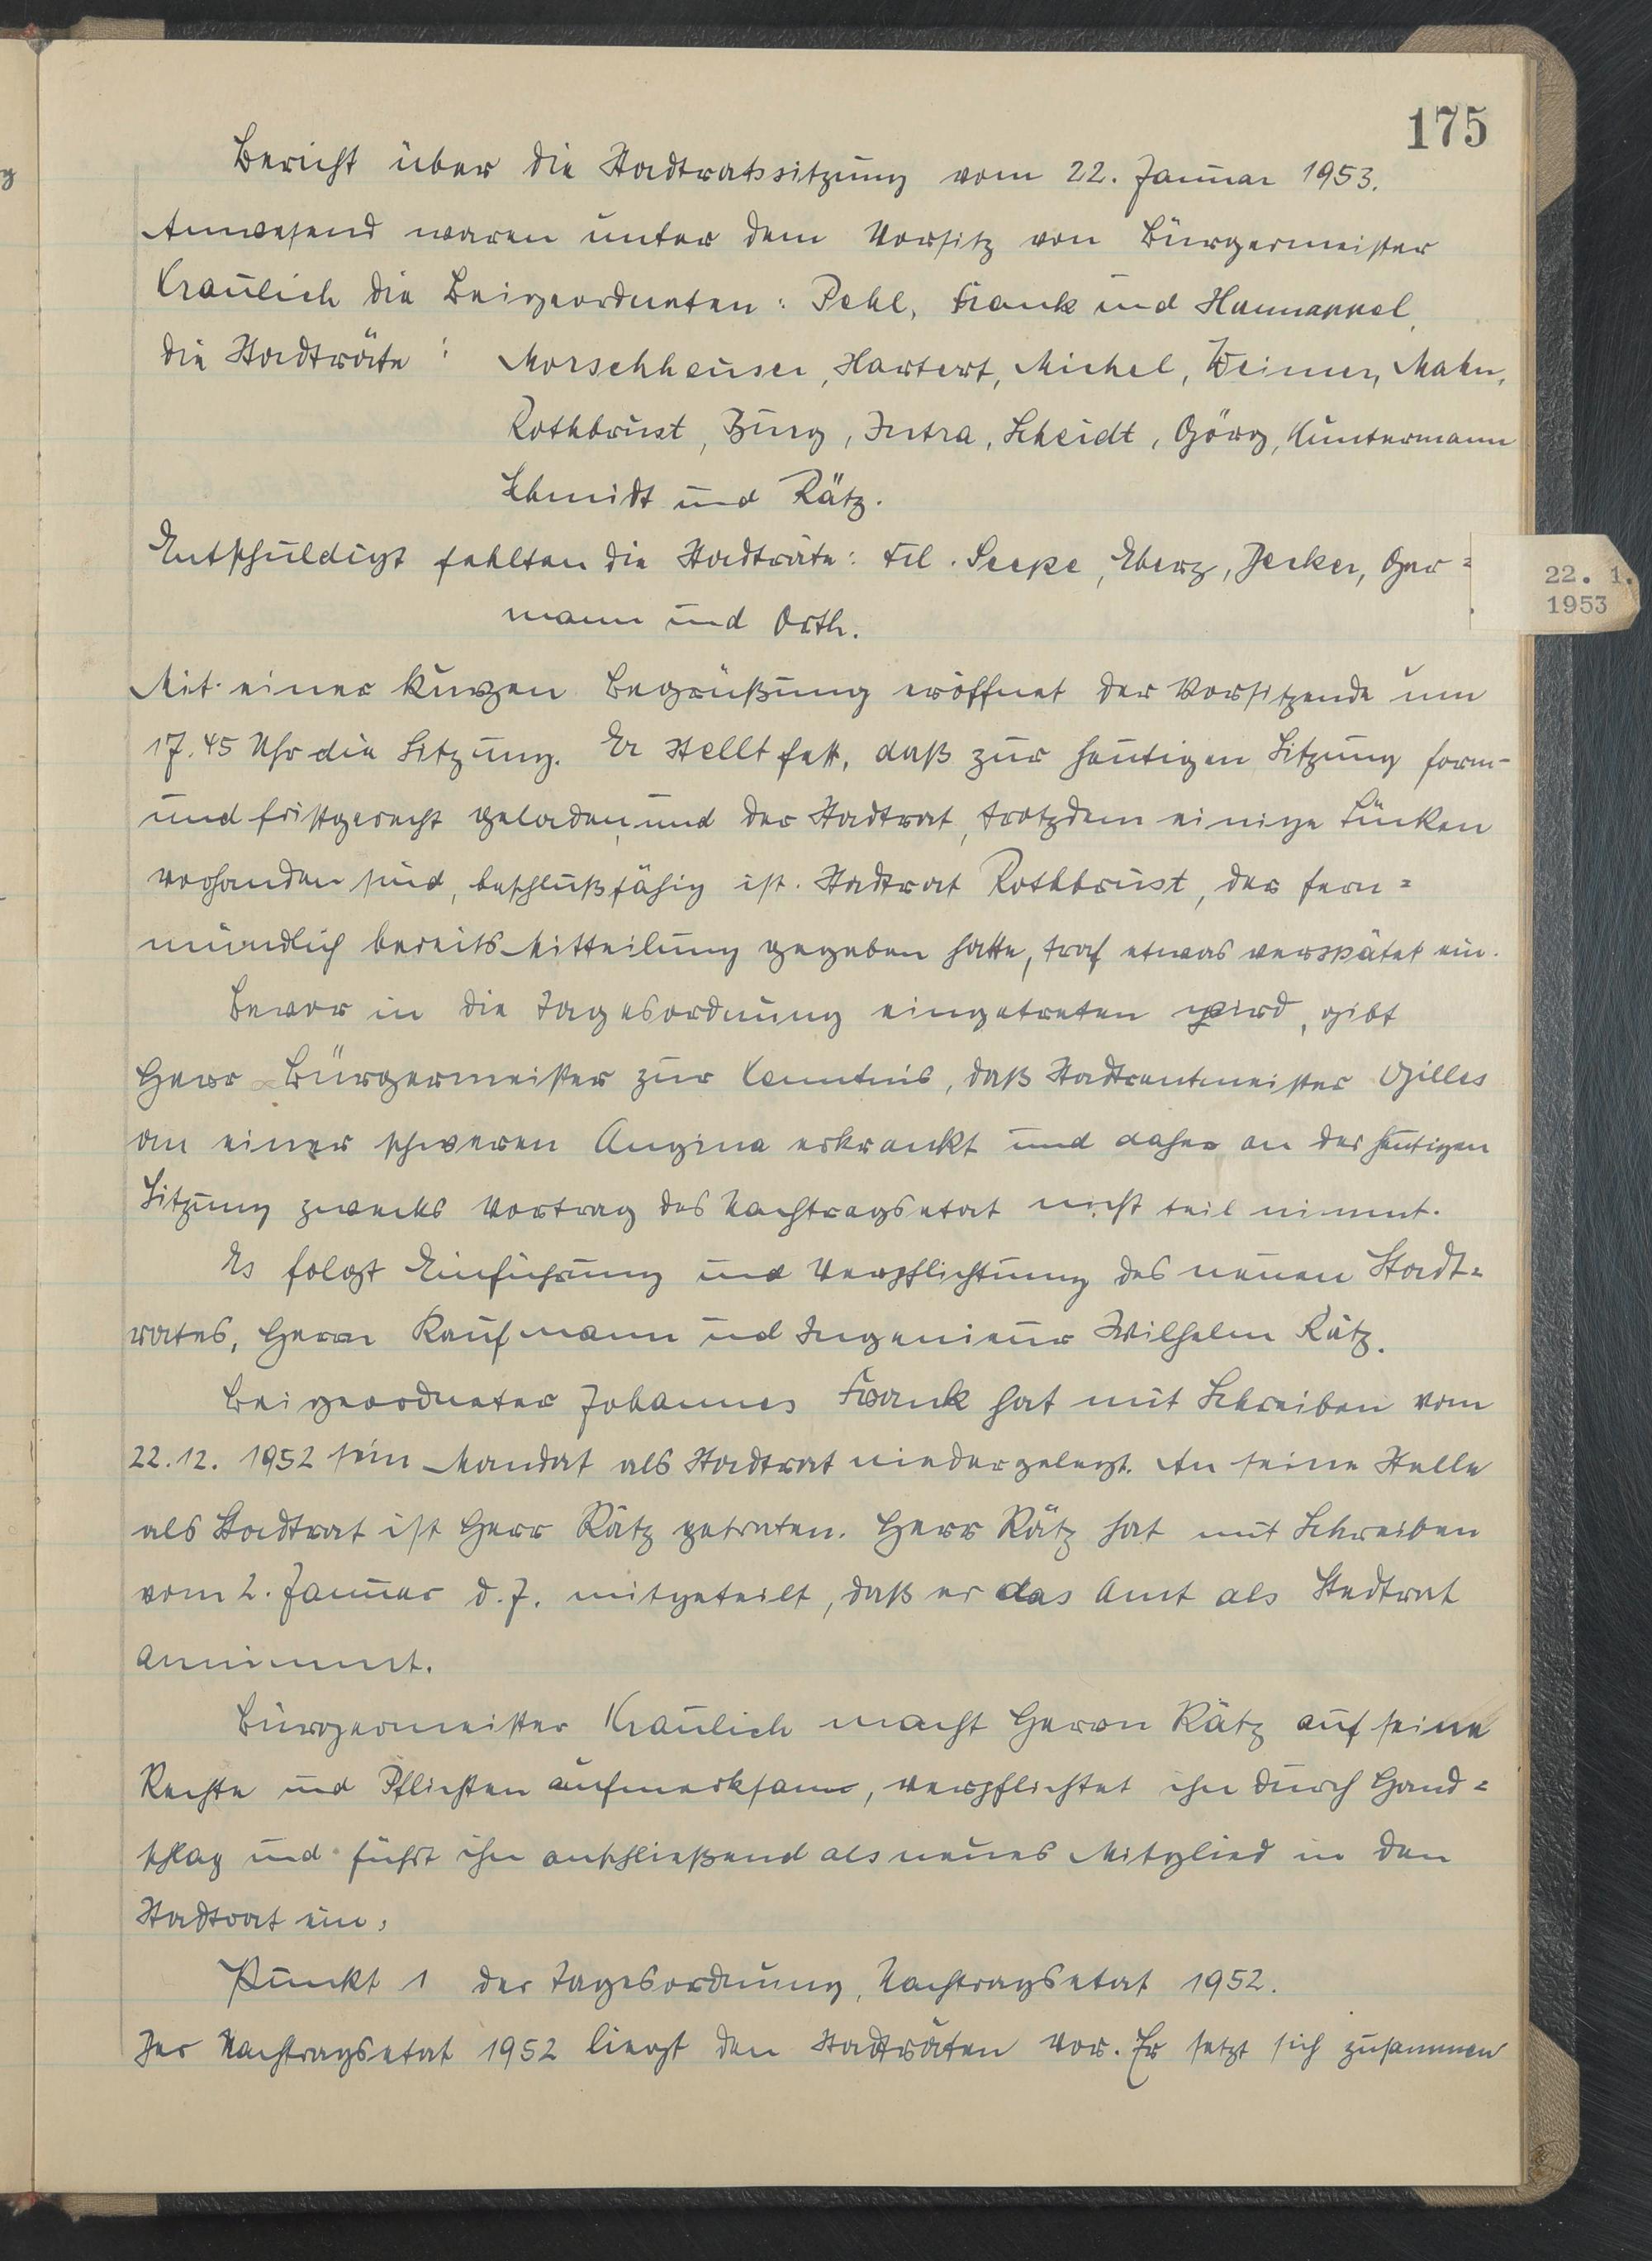 175
Bericht über die Stadtratssitzung vom 22. Januar 1953.
Anwesend waren unter dem Vorsitz von Bürgermeister
Kraulich die Beigeordneten: Pehl, Frank und Hannappel,
die Stadträte: Morschhäuser, Hartert, Michel, Weimer, Mahn,
Rothbrust, Burg, Intra, Scheidt, Görg, Kuntermann
Schmidt und Rätz.
Entschuldigt fehlten die Stadträte: Frl. Seepe, Eberz, Jecker, Ger=
mann und Orth.
22. 1.
1953
Mit einer kurzen Begrüßung eröffnet der Vorsitzende um
17.45 Uhr die Sitzung. Er stellt fest, daß zur heutigen Sitzung form-
und fristgerecht geladen, und der Stadtrat, trotzdem einige Lücken
vorhanden sind, beschlußfähig ist. Stadtrat Rothbrust, der fern=
mündlich bereits Mitteilung gegeben hatte, traf etwas verspätet ein.
Bevor in die Tagesordnung eingetreten wird, gibt
Herr Bürgermeister zur Kenntnis, daß Stadtrentmeister Gilles
an einer schweren Angina erkrankt und daher an der heutigen
Sitzung zwecks Vortrag des Nachtragsetat nicht teil nimmt.
Es folgt Einführung und Verpflichtung des neuen Stadt=
rates, Herrn Kaufmann und Ingenieur Wilhelm Rätz.
Beigeordneter Johannes Frank hat mit Schreiben vom
22.12. 1952 sein Mandat als Stadtrat niedergelegt. An seine Stelle
als Stadtrat ist Herr Rätz getreten. Herr Rätz hat mit Schreiben
vom 2. Januar d. J. mitgeteilt, daß er das Amt als Stadtrat
annimmt.
Bürgermeister Kraulich macht Herrn Rätz auf seine
Rechte und Pflichten aufmerksam, verpflichtet ihn durch Hand=
schlag und führt ihn anschließend als neues Mitglied in den
Stadtrat ein.
Punkt 1 der Tagesordnung, Nachtragsetat 1952.
Der Nachtragsetat 1952 liegt den Stadträten vor. Er setzt sich zusammen